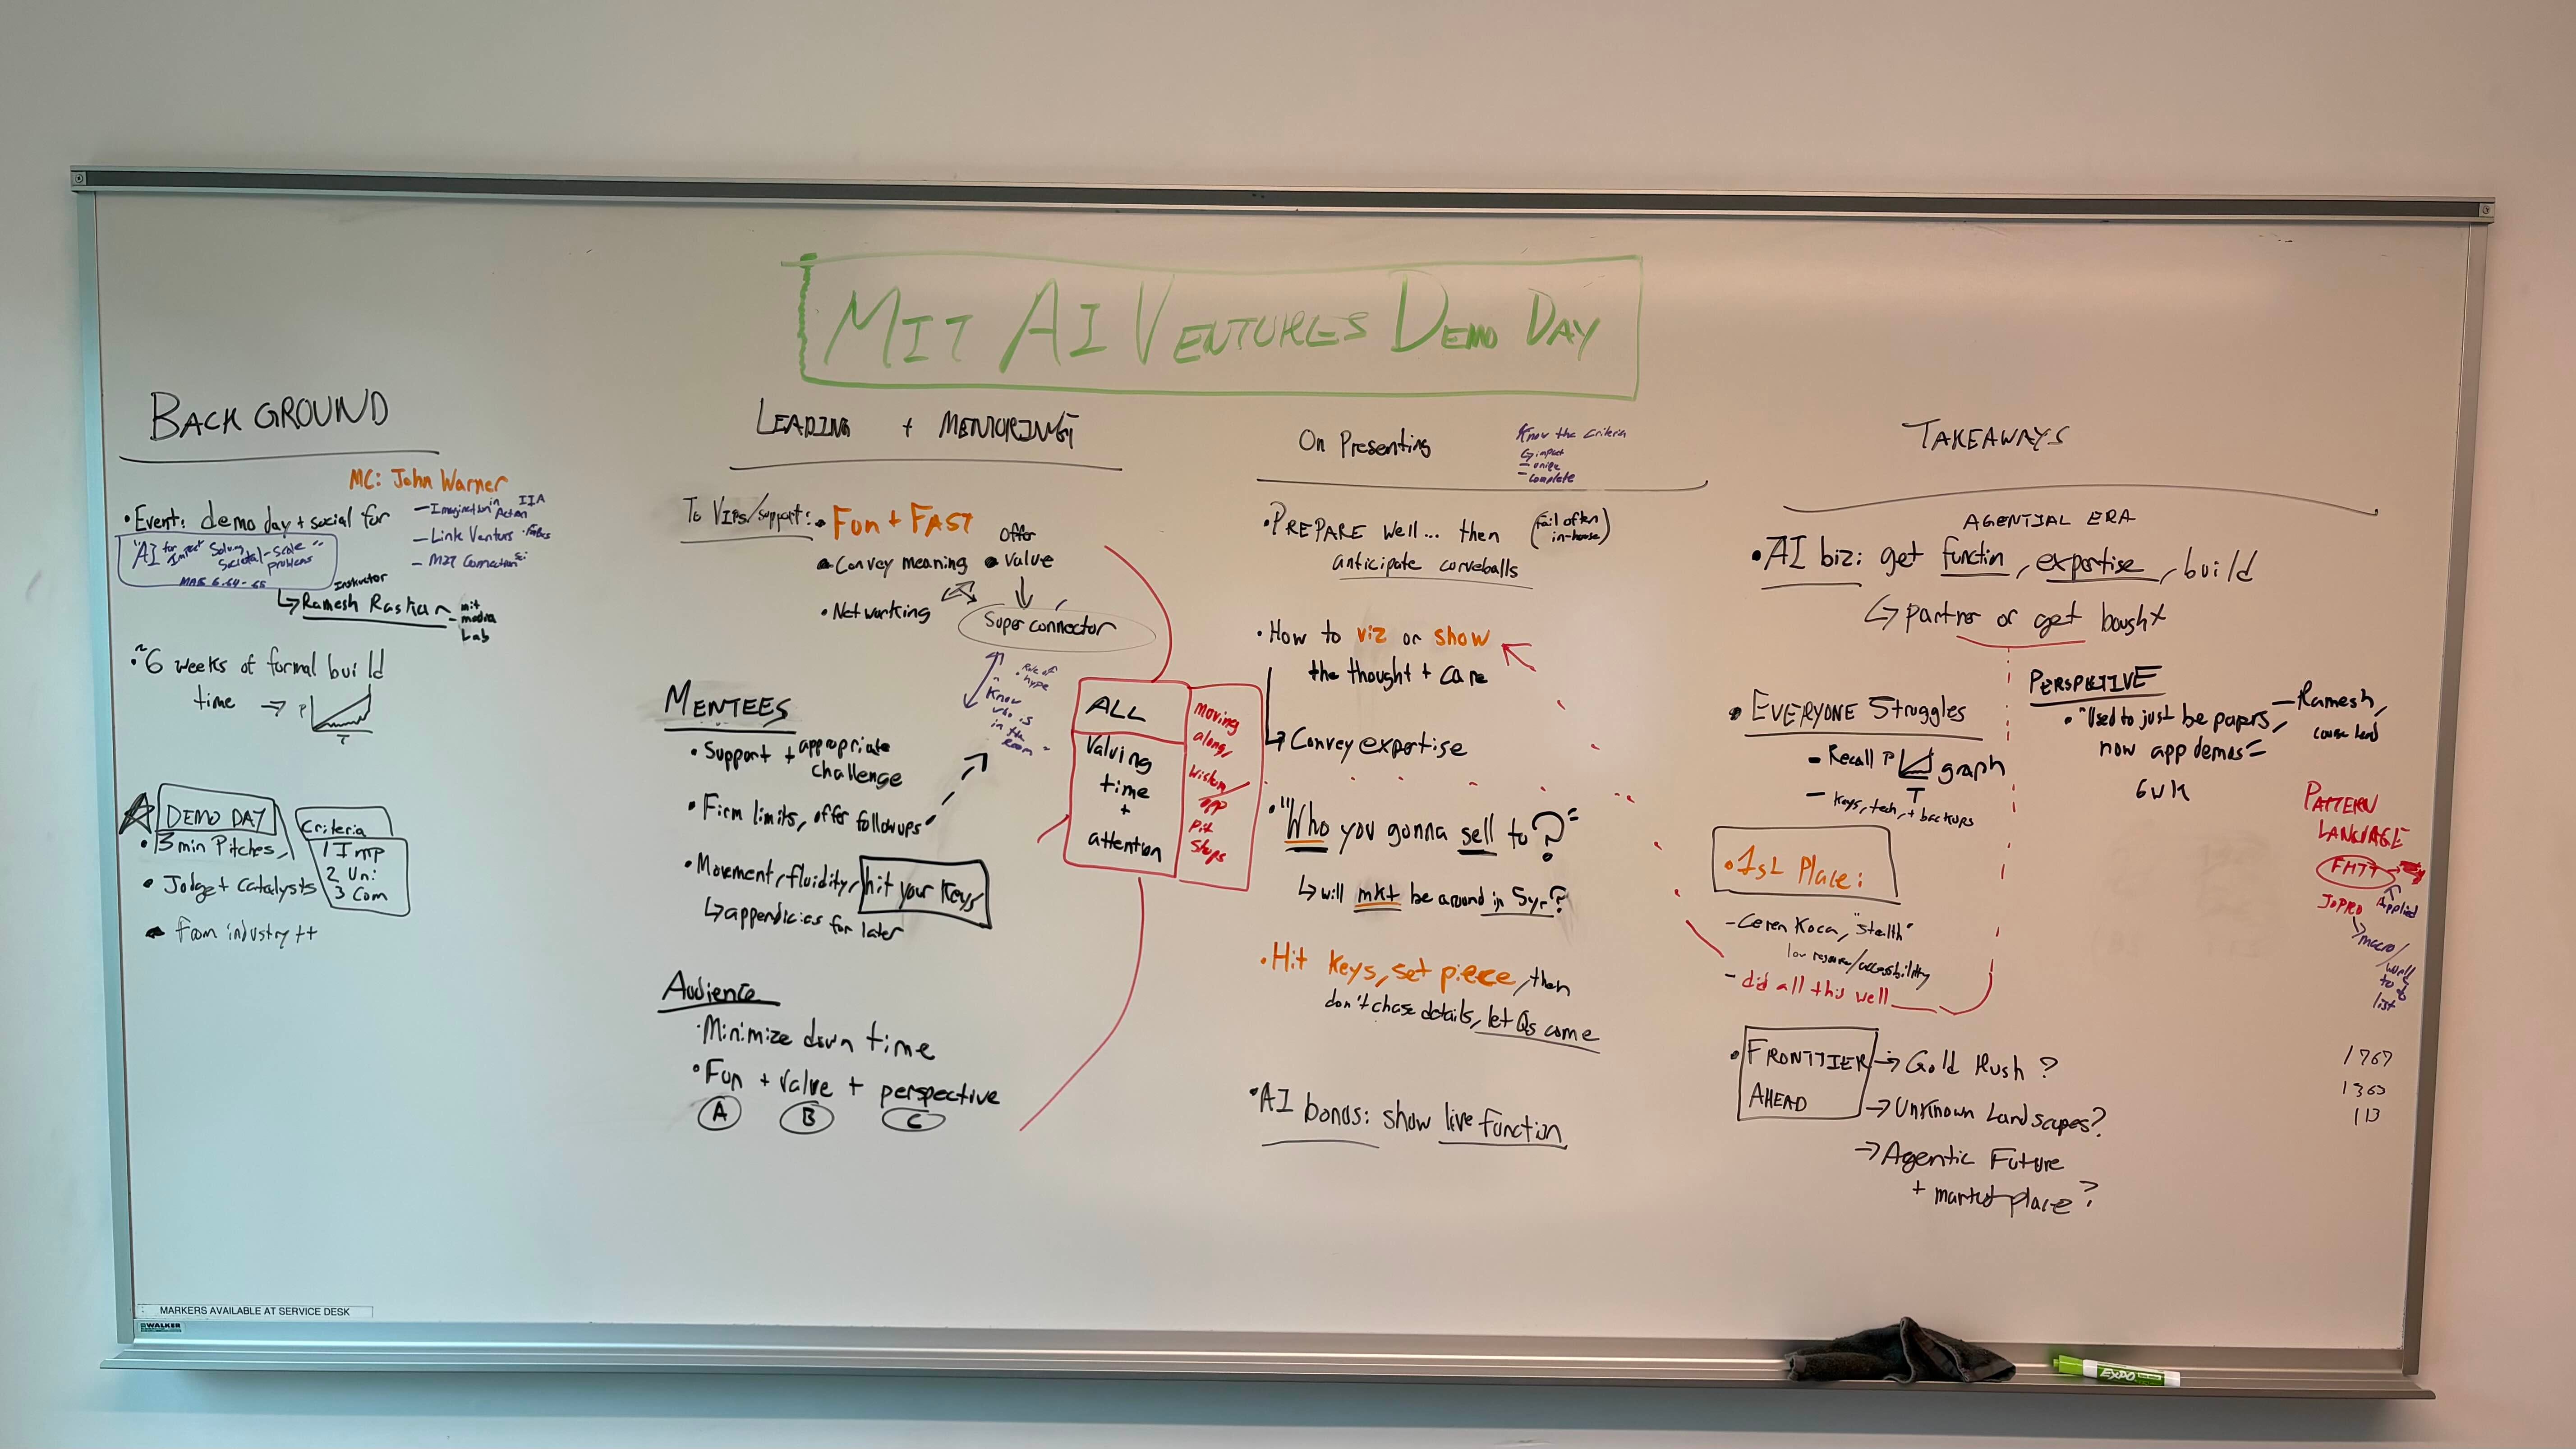 MIT AI VENTURES DEMO DAY
BACKGROUND
MC: John Warner
- Imagination in Action IIA
- Link Ventures · Forbes
- MIT Connection
• Event: demo day + social for
"AI for Impact Solving Societal-Scale problems"
MAS 6.64-65
Instructor
↳ Ramesh Raskar - mit media Lab
• ~6 weeks of formal build
time → P
T
DEMO DAY
• 3 min Pitches,
• Judge + Catalysts
from industry ++
Criteria
1 Imp
2 Uni
3 Com
LEADING + MENTORING
To VIPs/support:
• Fun + FAST
• Convey meaning
Offer
• Value
• Networking
Super connector
Rule of
hype
"Know
who is
in the
room"
MENTEES
• Support + appropriate
challenge
• Firm limits, offer followups
• Movement, fluidity, hit your keys
↳ appendicies for later
Audience
• Minimize down time
• Fun + value + perspective
A B C
ALL
Valuing
time
+
attention
moving
along,
opp
Pit
Stops
On Presenting
Know the criteria
↳ impact
- unique
- complete
• PREPARE well... then
(fail often
in-house)
anticipate curveballs
• How to viz or show
the thought + care
↳ Convey expertise
• "Who you gonna sell to?"
↳ will mkt be around in 5yr?
• Hit keys, set piece, then
don't chase details, let Qs come
• AI bonus: show live function
TAKEAWAYS
AGENTIAL ERA
• AI biz: get function, expertise, build
↳ partner or get bought
• EVERYONE Struggles
- Recall P
T
graph
- keys, tech, + backups
PERSPECTIVE
• "Used to just be papers,
now app demos"
6wk
- Ramesh,
course lead
• 1st Place:
- Ceren Koca, "Stealth"
low resource/accessibility
- did all this well
• FRONTTIER
AHEAD
→ Gold Rush?
→ Unknown Landscapes?
→ Agentic Future
+ marketplace?
PATTERN
LANGUAGE
FHTT
Applied
JOPRO
macro/
world
to do
list
1767
1363
113
MARKERS AVAILABLE AT SERVICE DESK
WALKER
EXPO